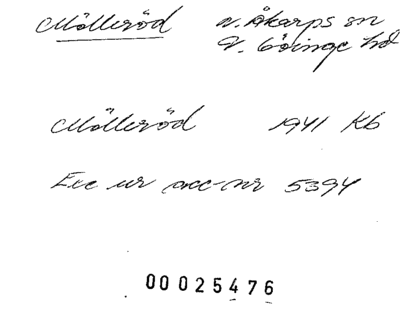 Mölleröd V. Åkarps sn
V. Göinge hd
Mölleröd 1941 Kb
Exc ur acc-nr 5394
00025476